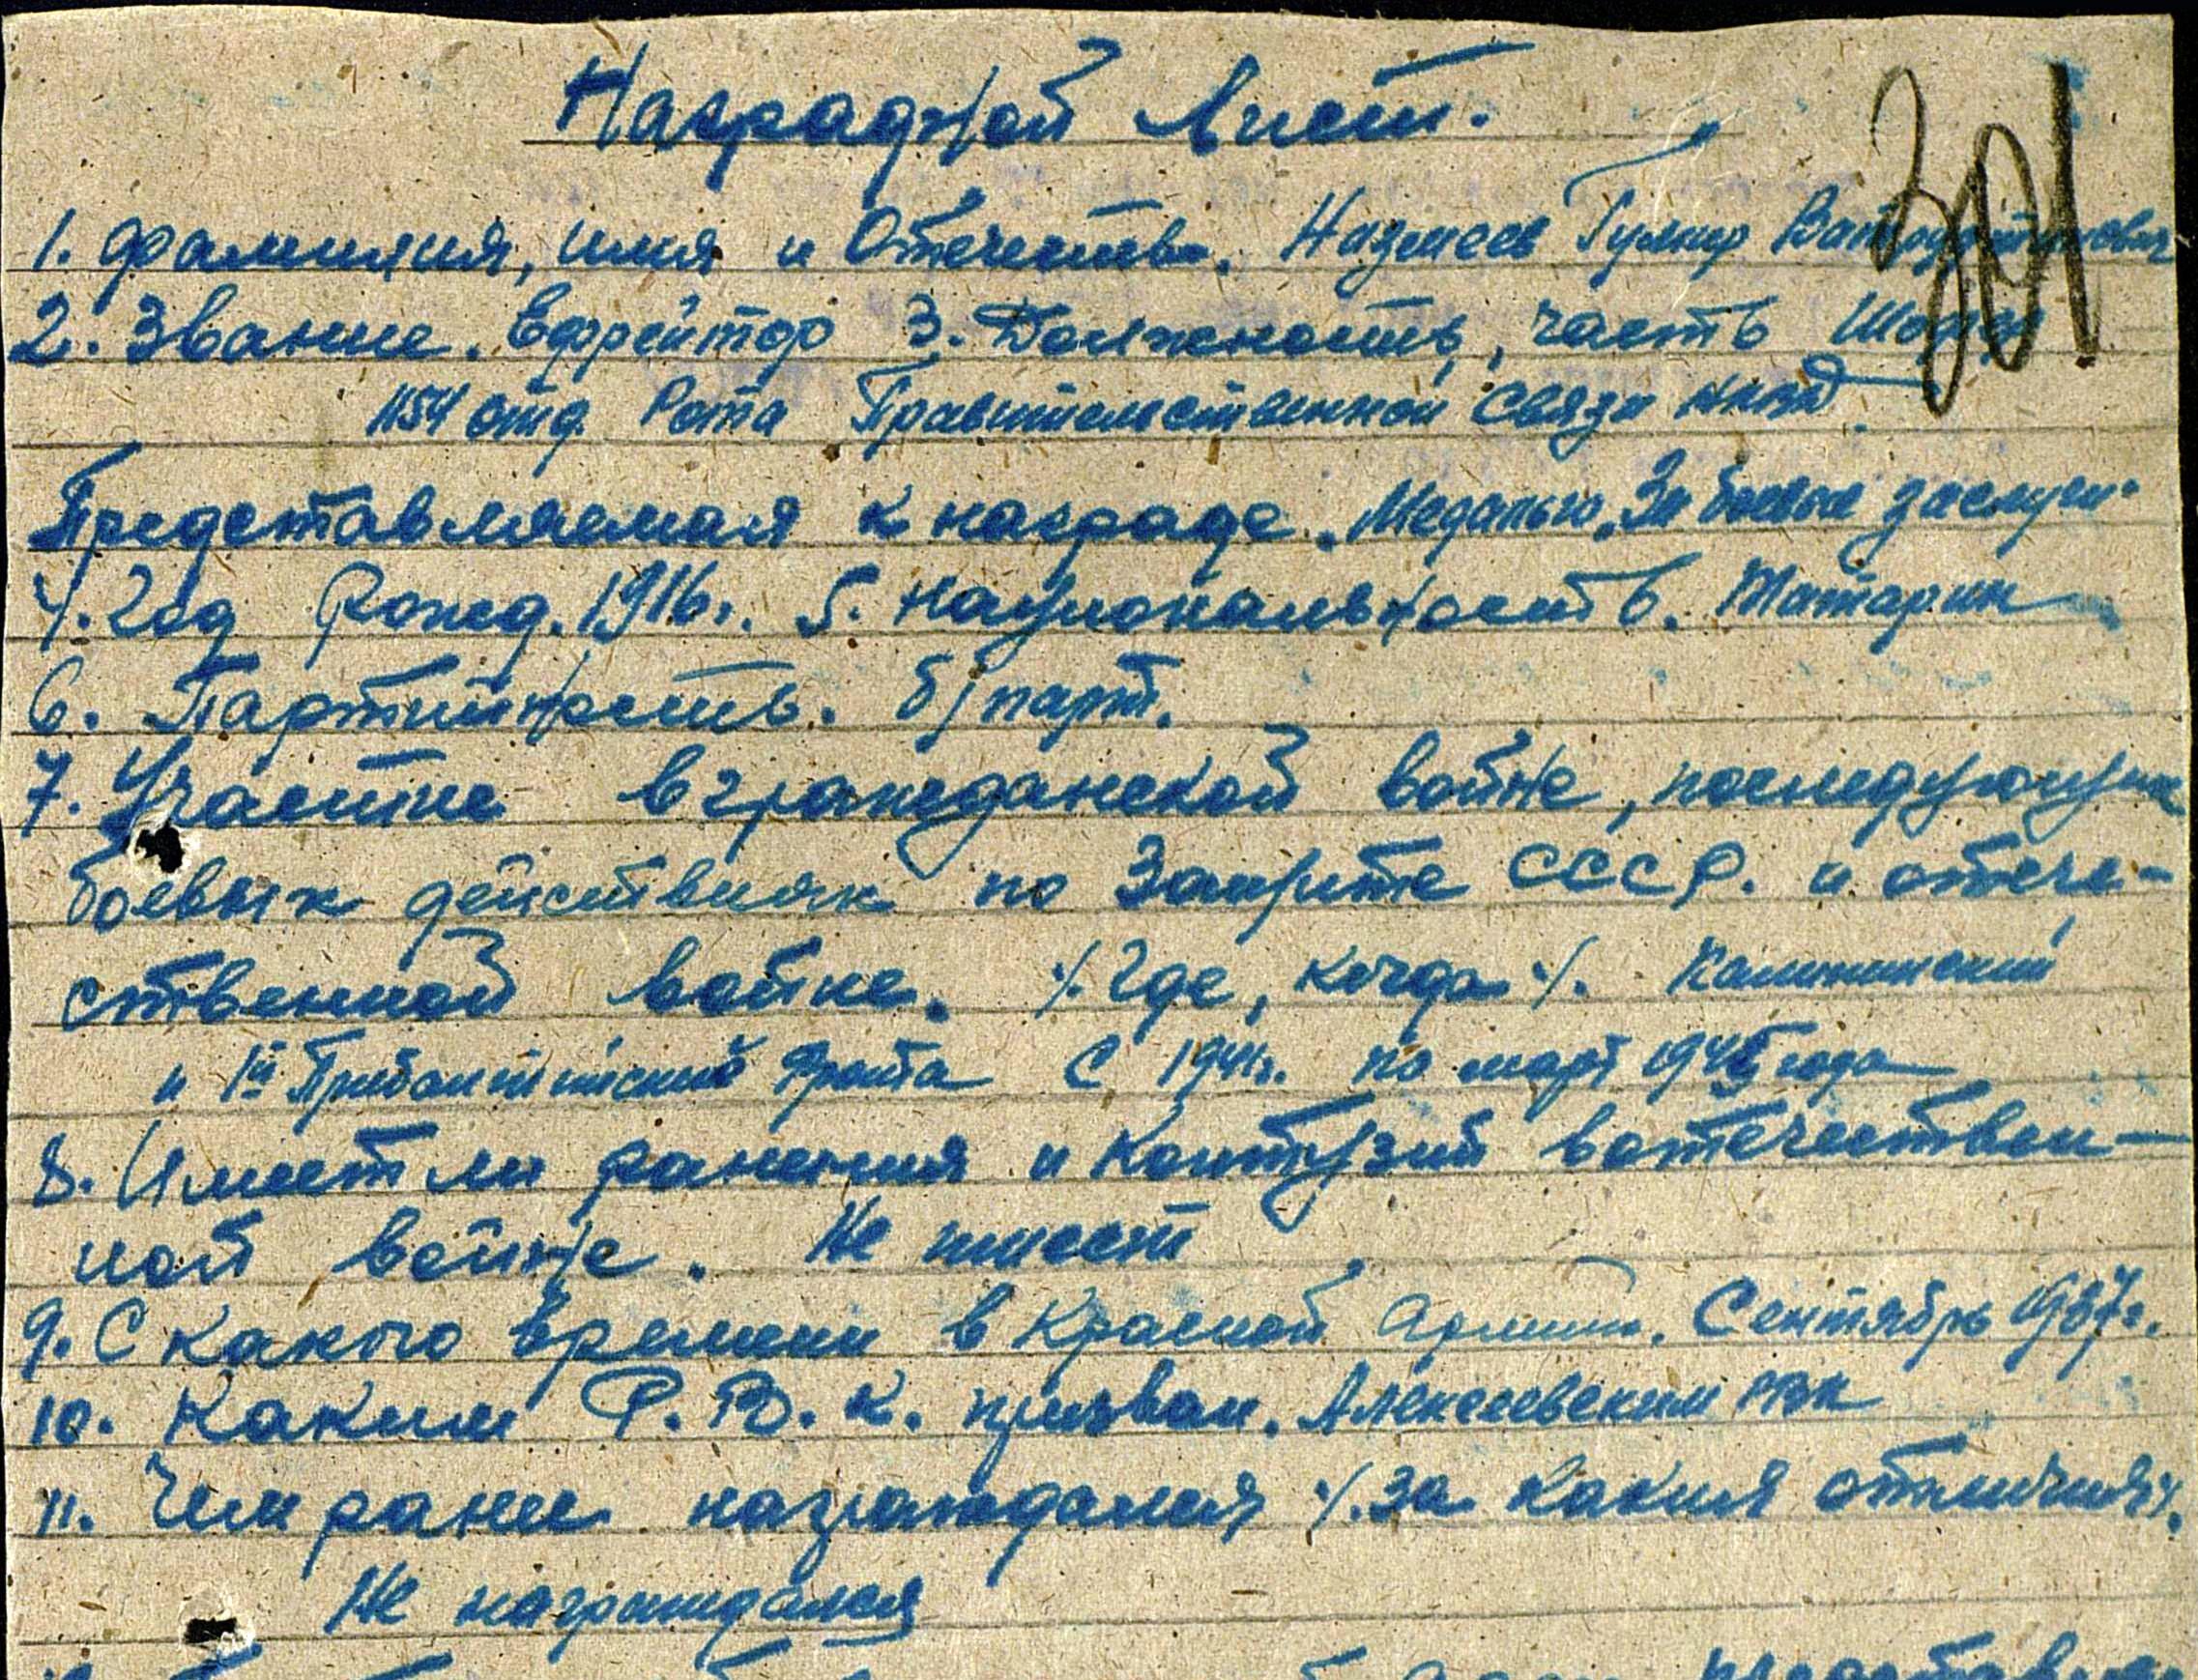 Наградной лист.
301
1. Фамилия, имя и Отечество. Назмеев Гумер
2. Звание. Ефрейтор 3. Должность, часть
1154 отд. Рота Правительственной связи НКВД
Представляемая к награде. Медалью „За боевые заслуги"
4. Год Рожд. 1916г. 5. Национальность. Татарин
6. Партийность. б/парт.
7. Участие в гражданской войне, последующих
боевых действиях по Защите СССР. и отече-
ственной войне. /. Где, когда /. Калининский
и 1й Прибалтийский Фронта С 1941г. по март 1945 года
8. Имеет ли ранения и Контузий в отечествен-
ной войне. Не имеет
9. С какого времени в Красной Армии. Сентябрь 1937г.
10. Каким Р.В.К. призван. Алексеевским РВК
11. Чем ранее награждался /. За какия отличия/.
Не награждался